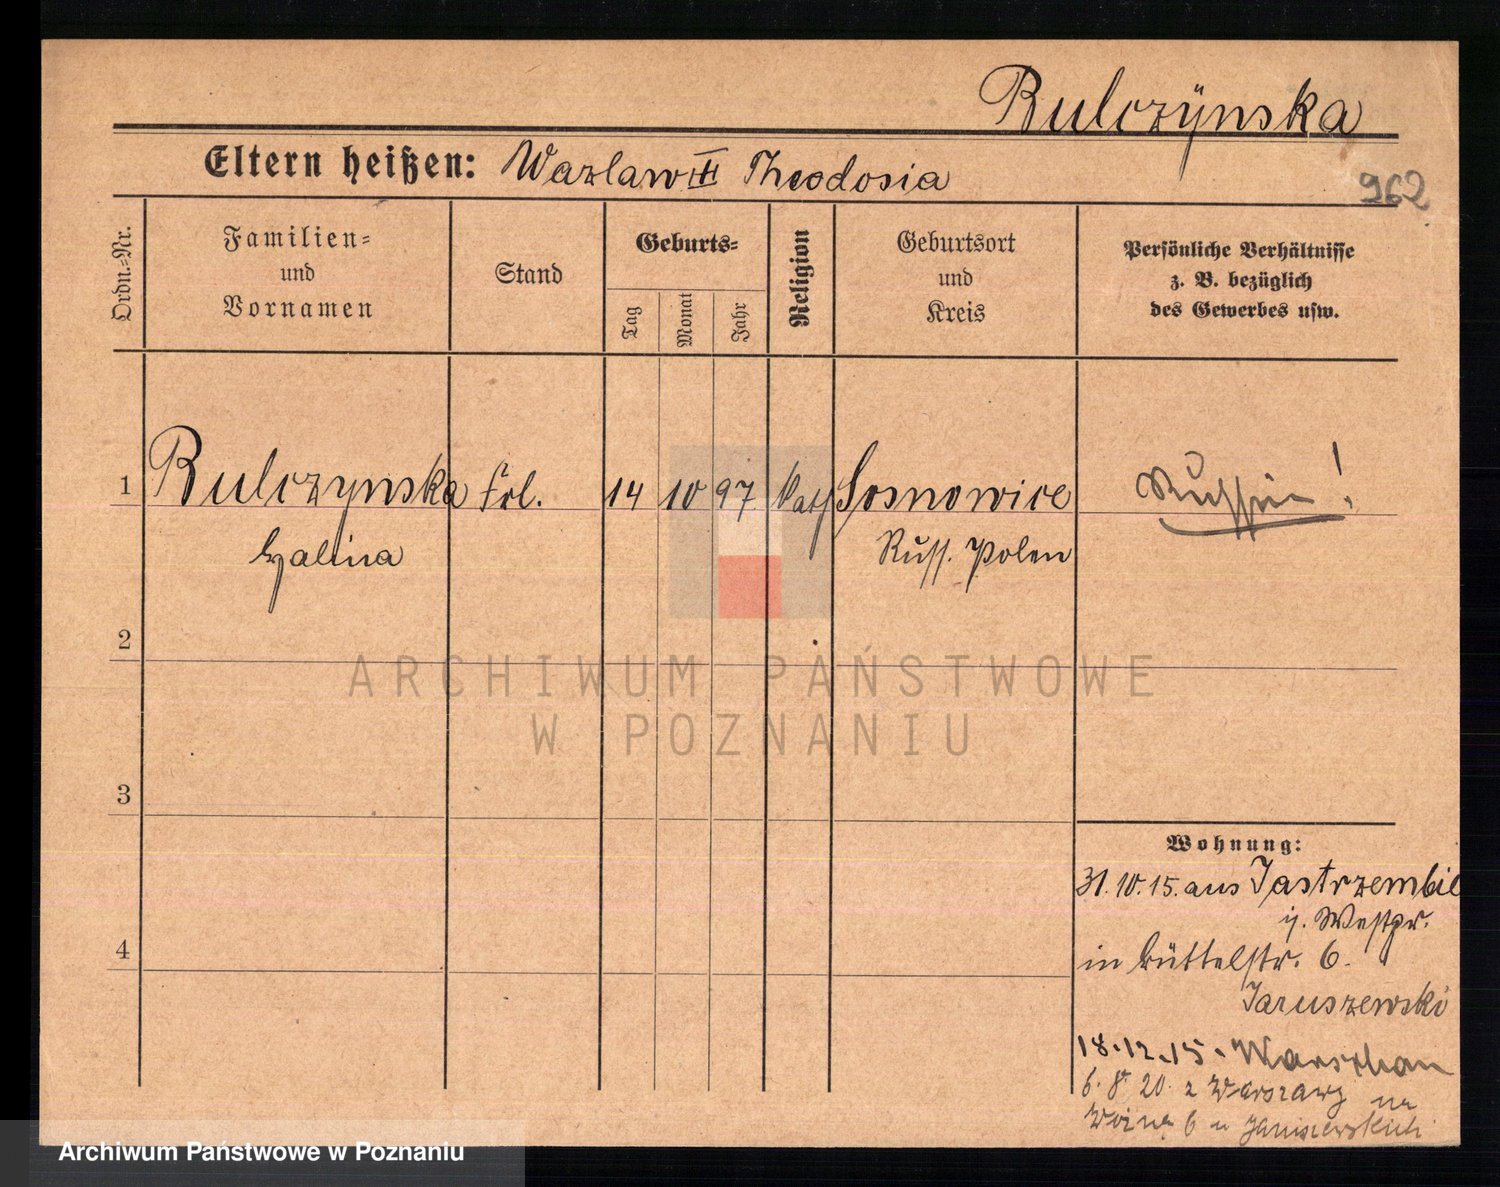 Bulczÿnska
Eltern heißen: Wazlaw Theodosia
962
Ordn.=Nr.
Familien=
und
Vornamen
Stand
Geburts=
Tag
Monat
Jahr
Religion
Geburtsort
und
Kreis
Persönliche Verhältnisse
z. B. bezüglich
des Gewerbes usw.
1 Bulczynska Frl. 14 10 97 kath Sosnowice Russin!
Halina Russ. Polen
2
3
4
Wohnung:
31.10.15. aus Jastrzembie
i. Westpr.
in Büttelstr. 6.
Januszewski
18.12.15. Warschau
6. 8. 20. z Warszawy na
Woźną 6 u Januszewskich
ARCHIWUM PAŃSTWOWE
W POZNANIU
Archiwum Państwowe w Poznaniu